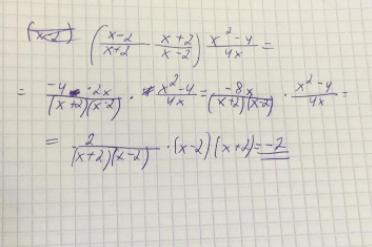 (x-2) ((x-2)/(x+2) - (x+2)/(x-2)) (x²-4)/(4x) =
= (-4 · 2x)/((x+2)(x-2)) · (x²-4)/(4x) = (-8x)/((x+2)(x-2)) · (x²-4)/(4x) =
= 2/((x+2)(x-2)) · (x-2)(x+2) = -2